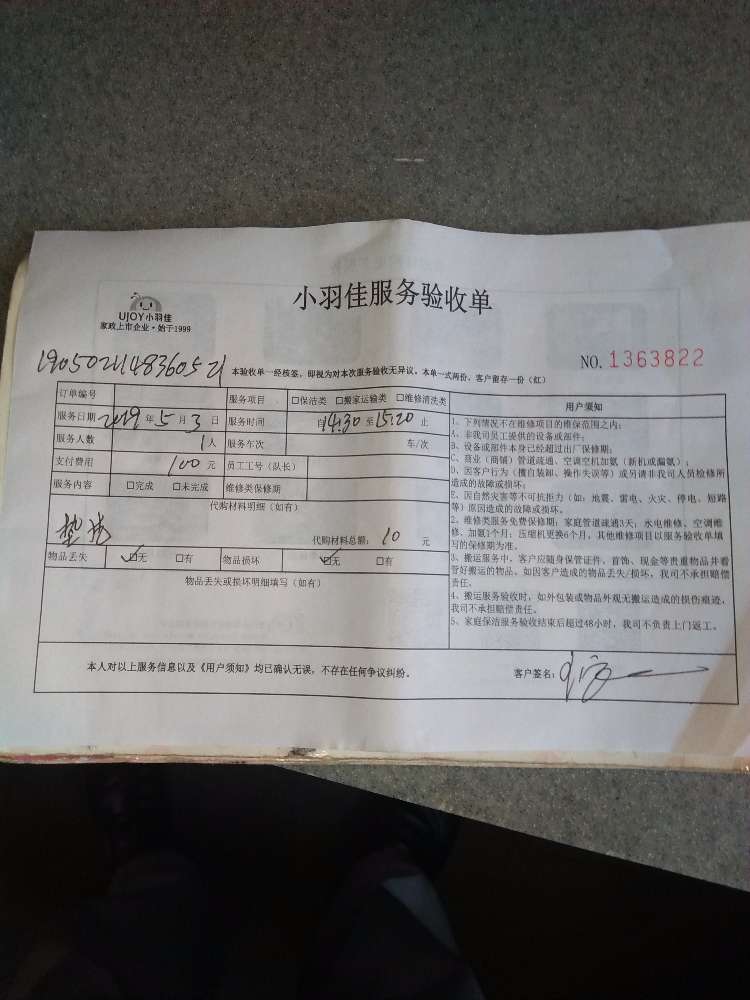 小羽佳服务验收单
UJOY小羽佳
家政上市企业·始于1999
NO. 1363822
本验收单一经核签，即视为对本次服务验收无异议。本单一式两份，客户留存一份（红）
订单编号 服务项目 □保洁类 □搬家运输类 □维修清洗类
服务日期 2019年5月3日 服务时间 自14:30至15:20止
服务人数 1人 服务车次 车/次
支付费用 100元 员工工号（队长）
服务内容 □完成 □未完成 维修类保修期
代购材料明细（如有）
代购材料总额： 10 元
物品丢失 ☑无 □有 物品损坏 ☑无 □有
物品丢失或损坏明细填写（如有）
用户须知
1、下列情况不在维修项目的维保范围之内：
A、非我司员工提供的设备或部件；
B、设备或部件本身已经超过出厂保修期；
C、商业（商铺）管道疏通、空调空机加氨（新机或漏氨）；
D、因客户行为（擅自装卸、操作失误等）或另请非我司人员检修所
造成的故障或损坏；
E、因自然灾害等不可抗拒力（如：地震、雷电、火灾、停电、短路
等）原因造成的故障或损坏。
2、维修类服务免费保修期：家庭管道疏通3天；水电维修、空调维
修、加氨1个月；压缩机更换6个月，其他维修项目以服务验收单填
写的保修期为准。
3、搬运服务中，客户应随身保管证件、首饰、现金等贵重物品并看
管好搬运的物品。如因客户造成的物品丢失/损坏，我司不承担赔偿
责任。
4、搬运服务验收时，如外包装或物品外观无搬运造成的损伤痕迹，
我司不承担赔偿责任。
5、家庭保洁服务验收结束后超过48小时，我司不负责上门返工。
本人对以上服务信息以及《用户须知》均已确认无误，不存在任何争议纠纷。 客户签名：